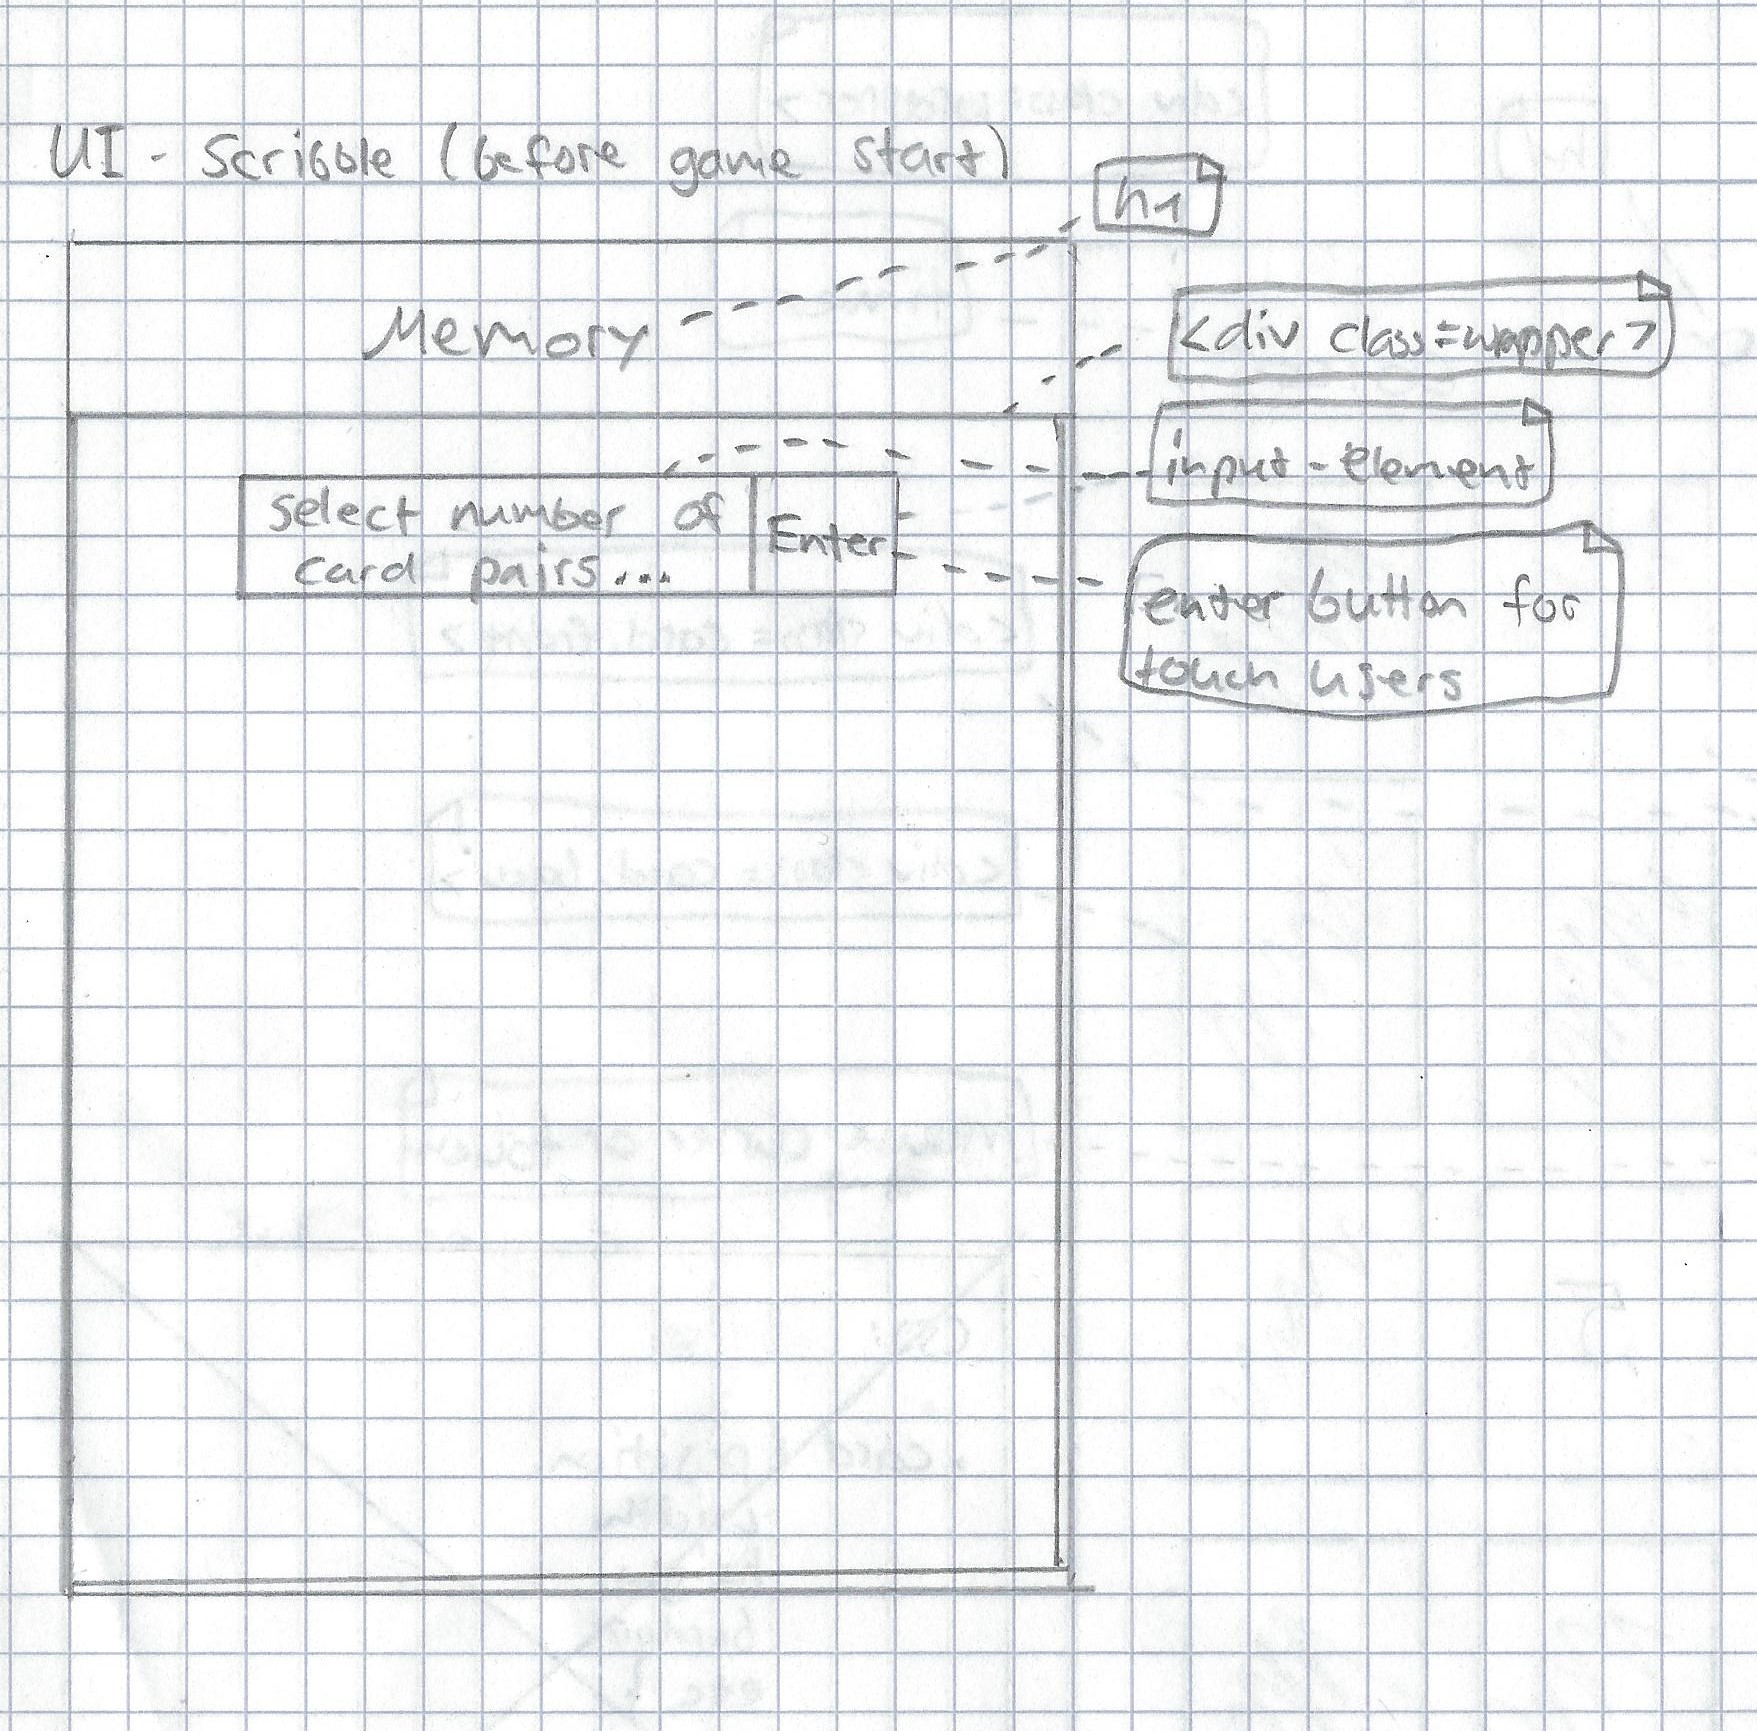 UI - Scribble (before game start)
h1
Memory
<div class=wapper>
input - Element
select number of
card pairs...
Enter
enter button for
touch users